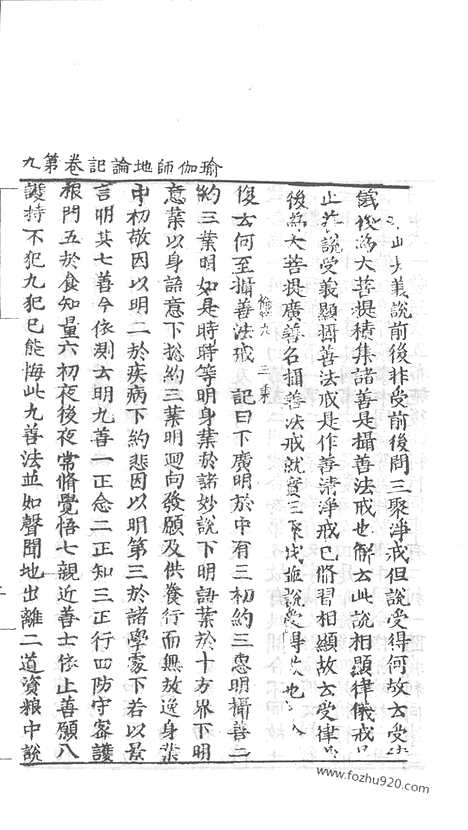 瑜伽師地論記卷第九
此大義說前後非受前後問三聚淨戒但說受得何故去受
後為大菩提積集諸善是攝善法戒也解去此說相顯律儀戒
止 說受義顯攝善法戒是作善清淨戒已將習相顯故去受律
後為大菩提廣善名攝善法戒就實三聚戒 說受得 也
倫 九 三 秉
復去何至攝善法戒 記曰下廣明於中有三初約三惠明攝善二
約三業明如是時時等明身業於諸妙說下明語業於十方界下明
意業以身語意下揔約三業明迴向發願及供養行而無放逸身業
中初敬因以明二於疾病下約悲因以明第三於諸學處下若以景
言明其七善今依測去明九善一正念二正知三正行四防守密護
根門五於食知量六初夜後夜常脩覺悟七親近善士依止善願八
護持不犯九犯已能悔此九善法並如聲聞地出離二道資粮中說
www.fozhu920.com